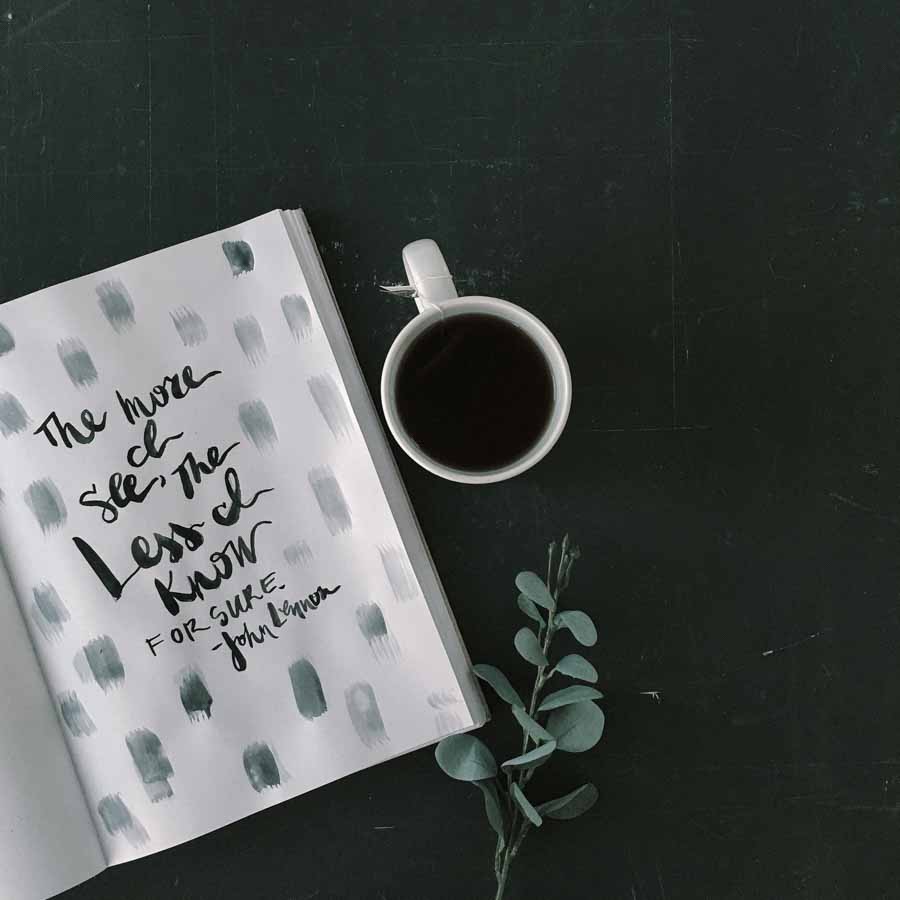 The more
I
See, The
Less I
Know
FOR SURE.
-John Lennon